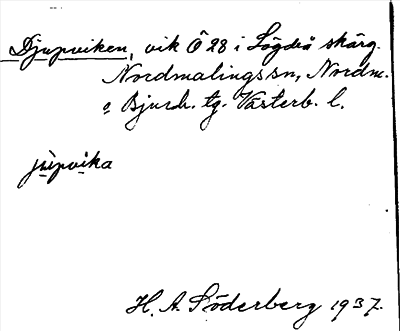 Djupviken, vik Ö 28 i Lögdeå skärg.
Nordmalings sn, Nordm.
o Bjurh. tg. Västerb. l.
jùpvika
H. A. Söderberg 1937.